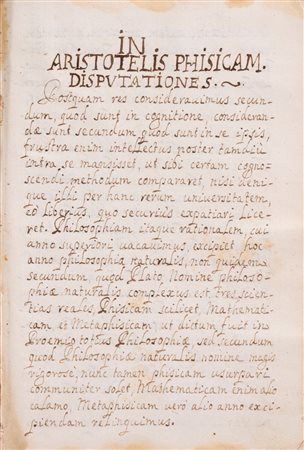 IN
ARISTOTELIS PHISICAM.
DISPUTATIONES.~
Postquam res consideravimus secun-
dum, quod sunt in cognitione, consideran-
dæ sunt secundum quod sunt in se ipsis,
frustra enim intellectus noster tamdiu
intra se mansisset, ut sibi certam cogno-
scendi methodum compararet, nisi deni-
que illi per hanc rerum universitatem,
eo liberius, quo securius expatiari lice-
ret. Philosophiam itaque rationalem, cui
anno superiori vacavimus, excipiet hoc
anno philosophia naturalis, non quidem
secundum, quod Plato, Nomine philoso-
phiæ naturalis complexus est tres scien-
tias reales, Phisicam scilicet, Mathemati-
cam et Metaphisicam, ut dictum fuit in
Proemio totius Philosophiæ, sed secundum
quod Philosophiæ naturalis, nomine magis
rigorose, nunc tamen phisicam usurpari
communiter solet, Mathematicam enim alio
calamo, Metaphisicam vero alio anno exci-
piendam relinquimus.